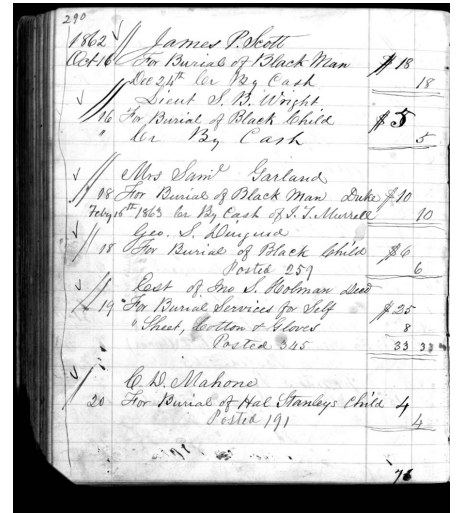 290
1862 James P. Scott
Oct 16 For Burial of Black Man $ 18
Dec 24th Cr By Cash 18
Lieut S. B. Wright
16 For Burial of Black Child $ 5
" Cr By Cash 5
Mrs Saml Garland
18 For Burial of Black Man Duke $ 10
Feby 16th 1863 Cr By Cash of J. T. Murrell 10
Geo. S. Diuguid
18 For Burial of Black Child $ 6
Posted 257 6
Est of Jno S. Holman Decd
19 " For Burial Services for Self $ 25
" Sheet, Cotton & Gloves 8
Posted 345 33 33
C. D. Mahone
20 For Burial of Hal Stanleys Child 4
Posted 191 4
76